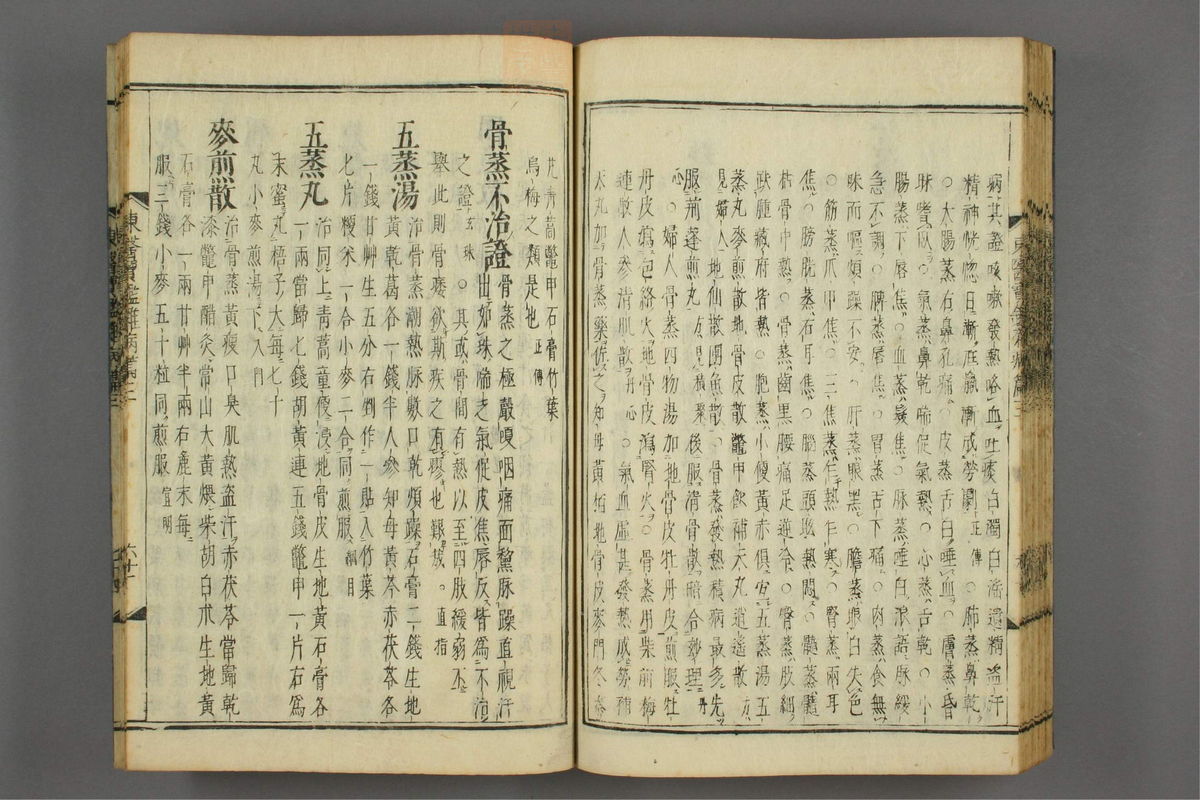 病其證咳嗽發熱咯血吐痰白濁白淫遺精盜汗
精神恍惚日漸尫羸漸成勞𤻤正傳○肺蒸鼻乾
○大腸蒸右鼻孔痛○皮蒸舌白唾血○膚蒸昏
昧嗜臥○氣蒸鼻乾喘促氣熱○心蒸舌乾○小
腸蒸下唇焦○血蒸髮焦○脉蒸唾白浪語脉緩
急不調○脾蒸唇焦○胃蒸舌下痛○肉蒸食無
味而嘔煩躁不安○肝蒸眼黑○膽蒸眼白失色
○筋蒸爪甲焦○三焦蒸乍熱乍寒○腎蒸兩耳
焦○膀胱蒸右耳焦○腦蒸頭眩熱悶○髓蒸髓
枯骨中熱○骨蒸齒黑腰痛足逆冷○臀蒸肢細
趺腫藏府皆熱○胞蒸小便黃赤俱宜五蒸湯五
蒸丸麥煎散地骨皮散鱉甲飮補天丸逍遙散方
見婦人地仙散團魚散○骨蒸發熱積病最多先
服荊蓬煎丸方見積聚後服淸骨散暗合玅理丹
心○婦人骨蒸四物湯加地骨皮牡丹皮煎服牡
丹皮瀉色絡火地骨皮瀉腎火○骨蒸用柴前梅
連散人參淸肌散丹心○氣血虛甚發熱成勞補
天丸加骨蒸藥佐之知母黃柏地骨皮麥門冬秦
艽靑蒿鱉甲石膏竹葉
烏梅之類是也正傳
骨蒸不治證骨蒸之極聲嗄咽痛面黧脉躁直視汗
出如珠喘乏氣促皮焦唇反皆爲不治
之證玄珠○其或骨間有熱以至四肢緩弱不
擧此則骨痿欲斯疾之有瘳也難哉直指
五蒸湯治骨蒸潮熱脉數口乾煩躁石膏二錢生地
黃乾葛各一錢半人參知母黃芩赤茯苓各
一錢甘艸生五分右剉作一貼入竹葉
七片粳米一合小麥二合同煎服綱目
五蒸丸治同上靑蒿童便浸地骨皮生地黃石膏各
一兩當歸七錢胡黃連五錢鱉甲一片右爲
末蜜丸梧子大每七十
丸小麥煎湯下入門
麥煎散治骨蒸黃瘦口臭肌熱盜汗赤茯苓當歸乾
漆鱉甲醋灸常山大黃煨柴胡白朮生地黃
石膏各一兩甘艸半兩右麁末每
服三錢小麥五十粒同煎服宣明
東醫寶鑑雜病篇
六十一